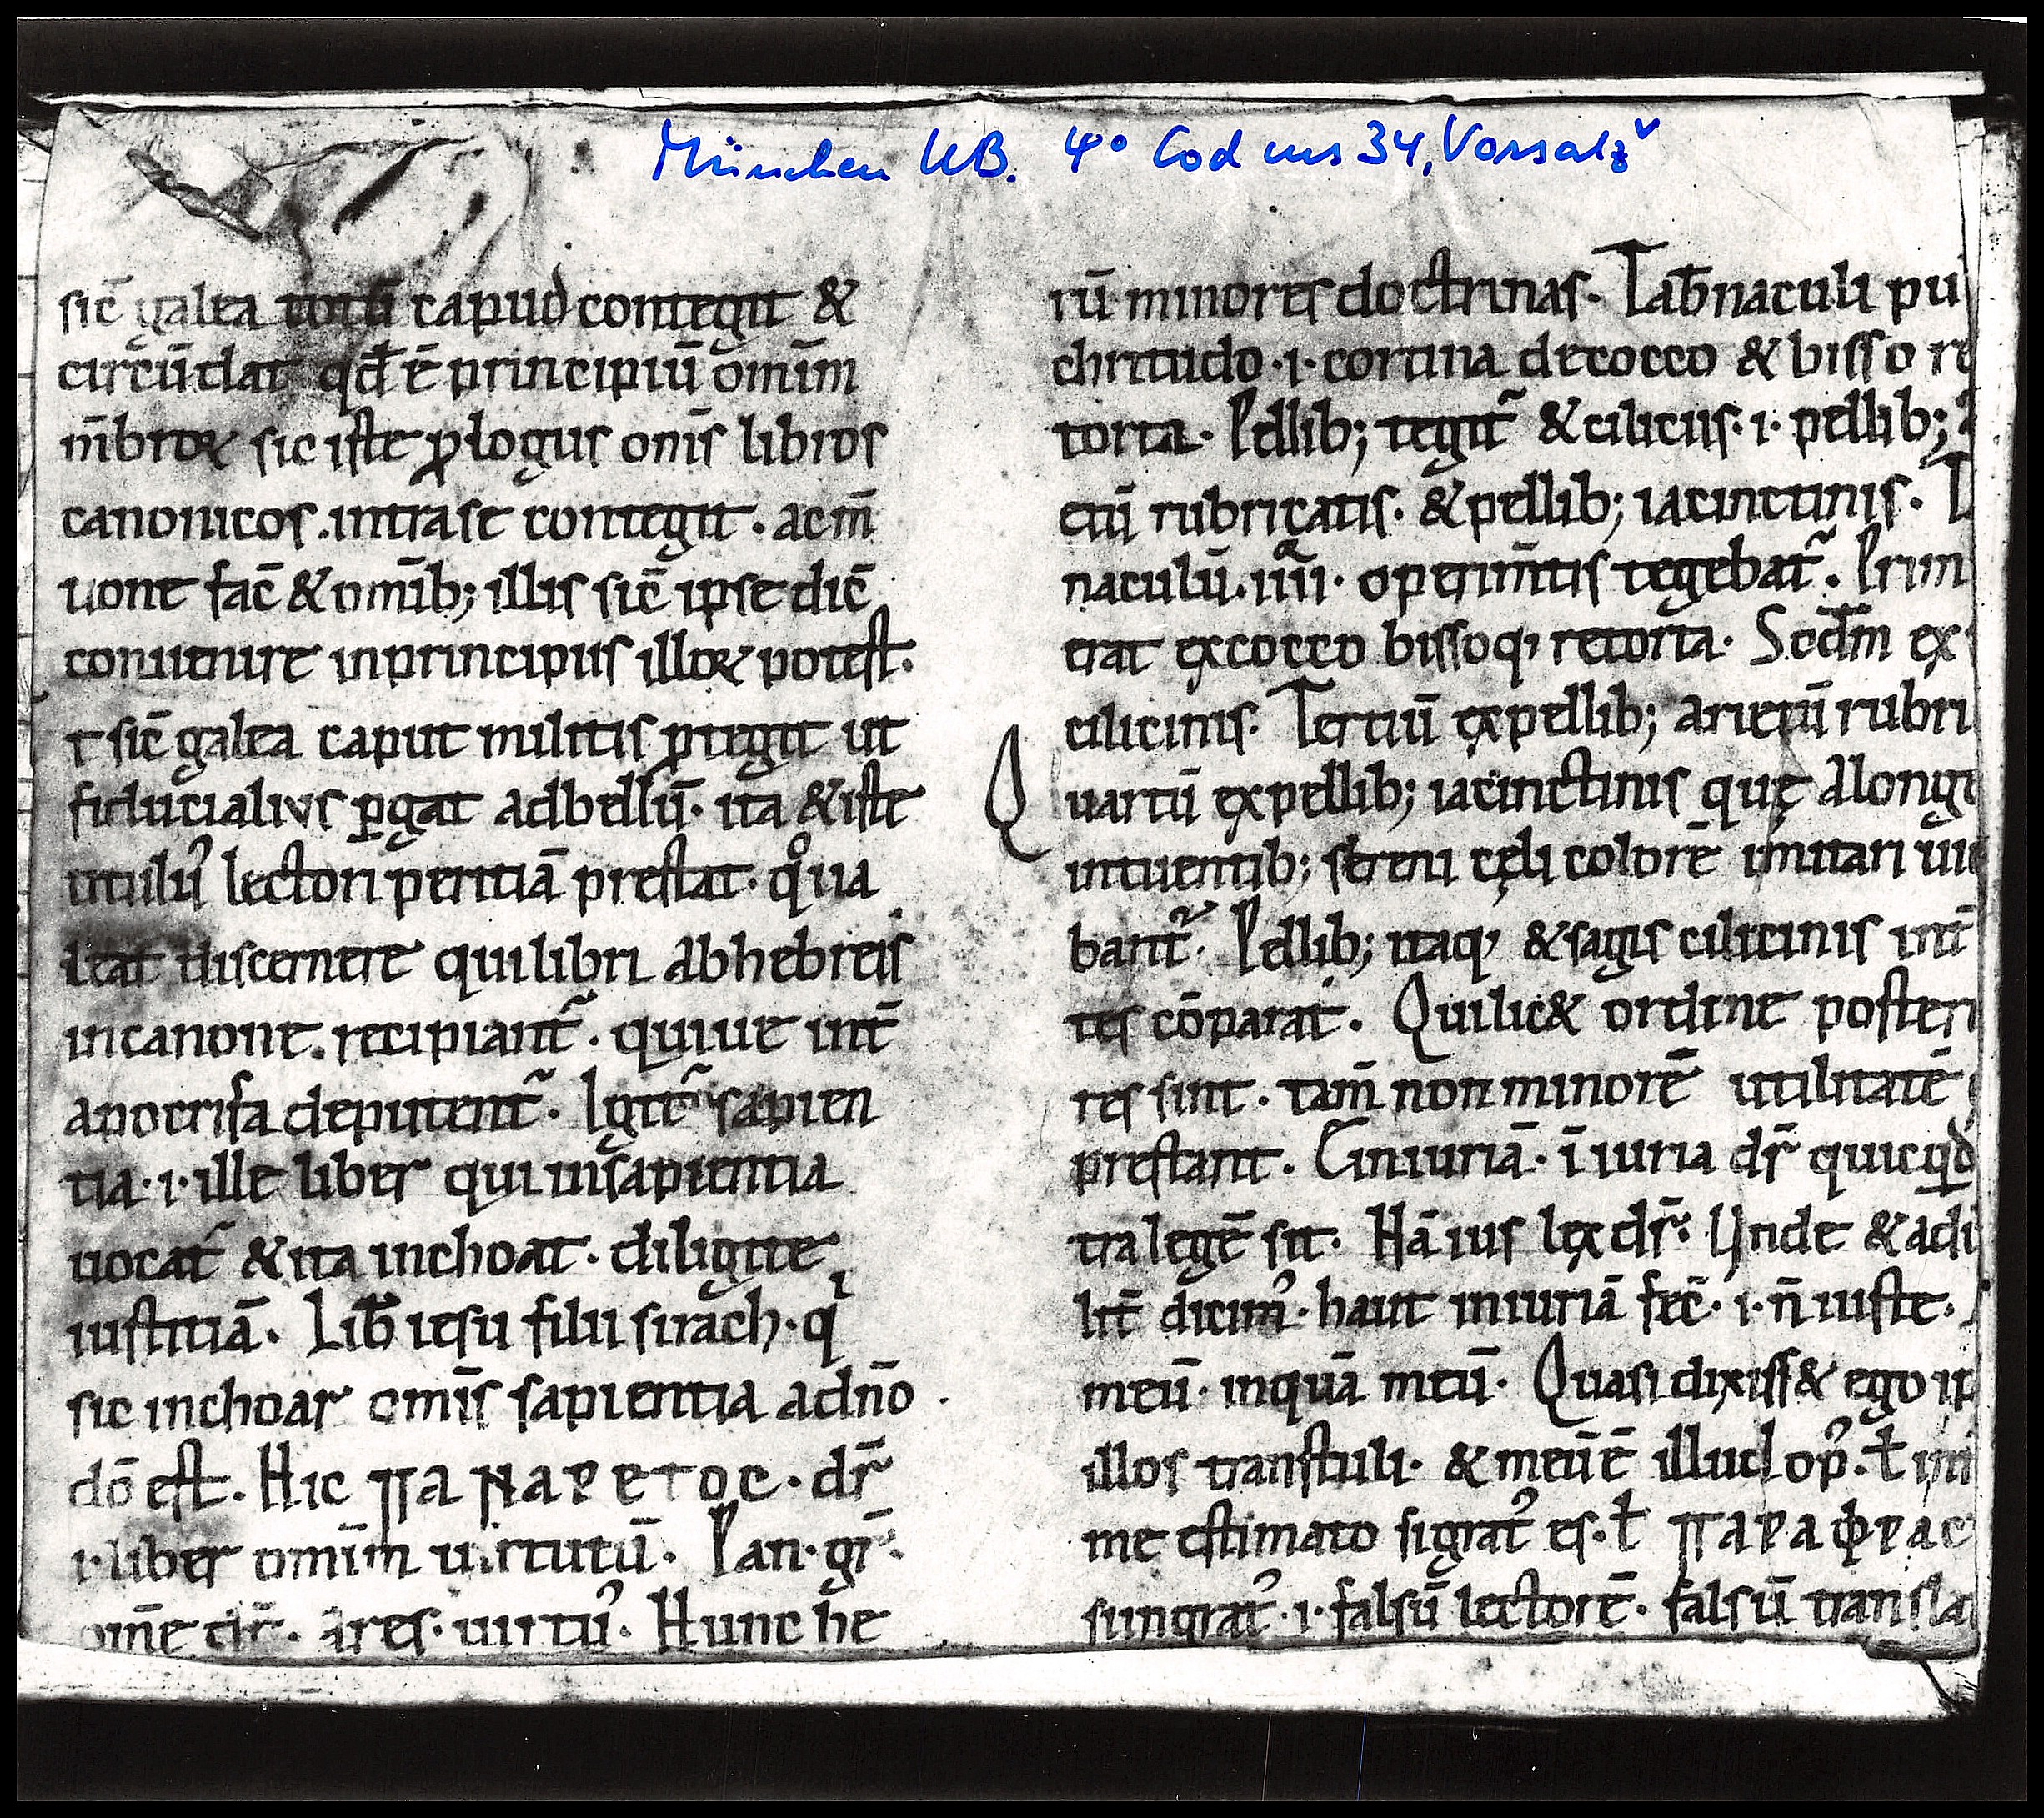 München UB. 4° Cod ms 34, Vorsatzᵛ
sic̄ galea totū capud contegit &
circūdat qđ ē principiū omīm
m̄broꝝ sic iste ꝓlogus om̄s libros
canonicos. intra se contegit. ac m̄
uone fac̄ & omīb; illis sic̄ ipse dic̄
conuenire in principiis illoꝝ potest.
t sic̄ galea caput militis ꝓtegit ut
fiducialius ꝑgat ad bellū. ita & iste
utiliꝰ lectori peritiā prestat. qͦ ua
leat discernere qui libri ab hebreis
in canone. recipiant᷑. qui ue int̄
apocrifa deputent᷑. Igit᷑ sapien
tia .i. ille liber qui in sapientia
uocat᷑ & ita inchoat. diligite
iustitiā. Lib̄ iesu filii sirach. qⁱ
sic inchoat᷑ omīs sapientia a dn̄o
dō est. Hic ΠΑΝΑΡΕΤΟC. dr̄
.i. liber omīm uirtutū. Pan. gr̄.
omn̄e dr̄. ares. uirtꝰ. Hunc he
rū minores doctrinas. Tab̄naculi pu
chritudo .i. cortina de cocco & bisso re
torta. Pellib; tegit᷑ & ciliciis .i. pellib; a
etiū rubricatis. & pellib; iacinctinis. T
naculū. iiiiᵒʳ operim̄tis tegebat᷑. Prim
erat ex cocco bissoq; retorta. Scd̄m ex
cilicinis. Tertiū ex pellib; arietū rubri
Quartū ex pellib; iacinctinis quę a longe
intuentib; sereni cęli colorē imitari uide
bant᷑. Pellib; itaq; & sagis cilicinis int̄
tes cōparat. Qui lic& ordine posteri
res sint. tam̄ non minorē utilitatē
prestant. C iniuriā. īiuria dr̄ quicqͥd
tra legē sit. Nā ius lex dr̄. Unde & adi
lit̄ dicimꝰ. haut iniuriā fec̄ .i. n̄ iuste.
meū. inquā meū. Quasi dixiss& ego ip
illos transtuli. & meū ē illud opꝰ. ł mi
me estimato si gratꝰ es. ł ΠΑΡΑΦΡΑC
sun gratꝰ .i. falsū lectorē. falsū transla